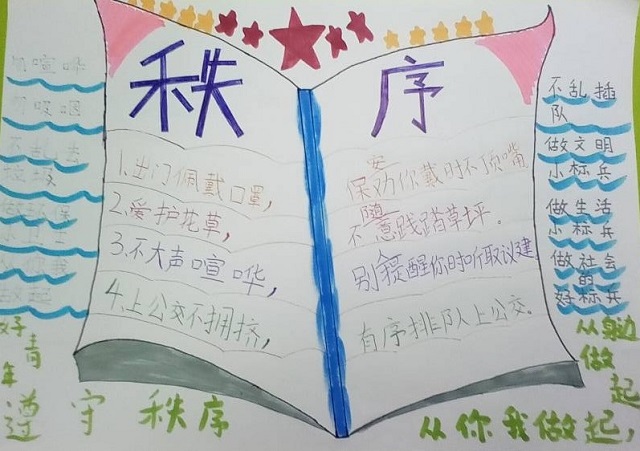 秩序
1.出门佩戴口罩，
保安劝你戴时不顶嘴
2.爱护花草，
不随意践踏草坪．
3.不大声喧哗，
别人提醒你时听取议建
4.上公交不拥挤，
有序排队上公交．
喧哗
不乱插
队
做文明
小标兵
做生活
小标兵
做社会
的
好标兵
好青年
遵守秩序
从你我做起，
从身边做起